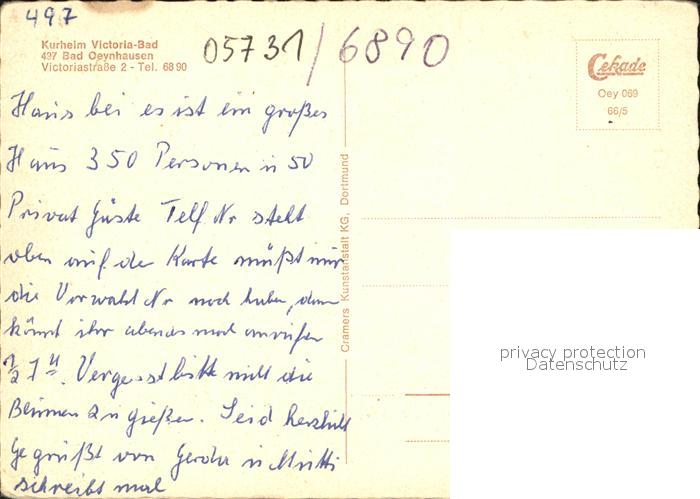 497
Kurheim Victoria-Bad
497 Bad Oeynhausen
Victoriastraße 2 - Tel. 68 90
05731/6890
Cekade
Oey 069
66/5
Haus bei es ist ein großes
Haus 350 Personen u 50
Privat Gäste Telf Nr steht
oben auf der Karte müßt nur
die Vorwahl Nr noch haben, dann
könnt ihr abends mal anrufen
½ 7 U. Vergesst bitte nicht die
Blumen zu gießen. Seid herzlich
gegrüßt von Gerda u Mutti
schreibt mal
Cramers Kunstanstalt KG, Dortmund
privacy protection
Datenschutz